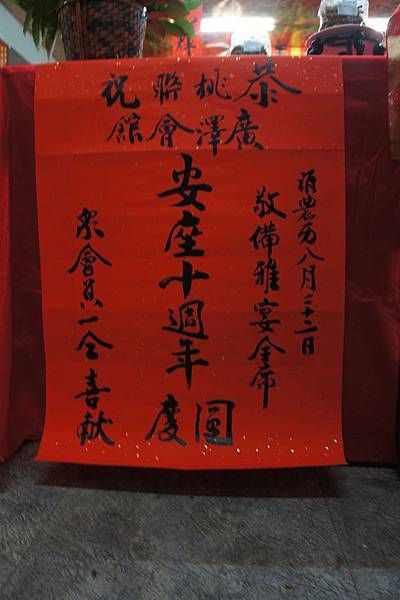 恭桃聯祝
廣澤會館
農历八月二十二日
敬備雅宴全席
安座十週年
圓慶
眾會員一仝喜献